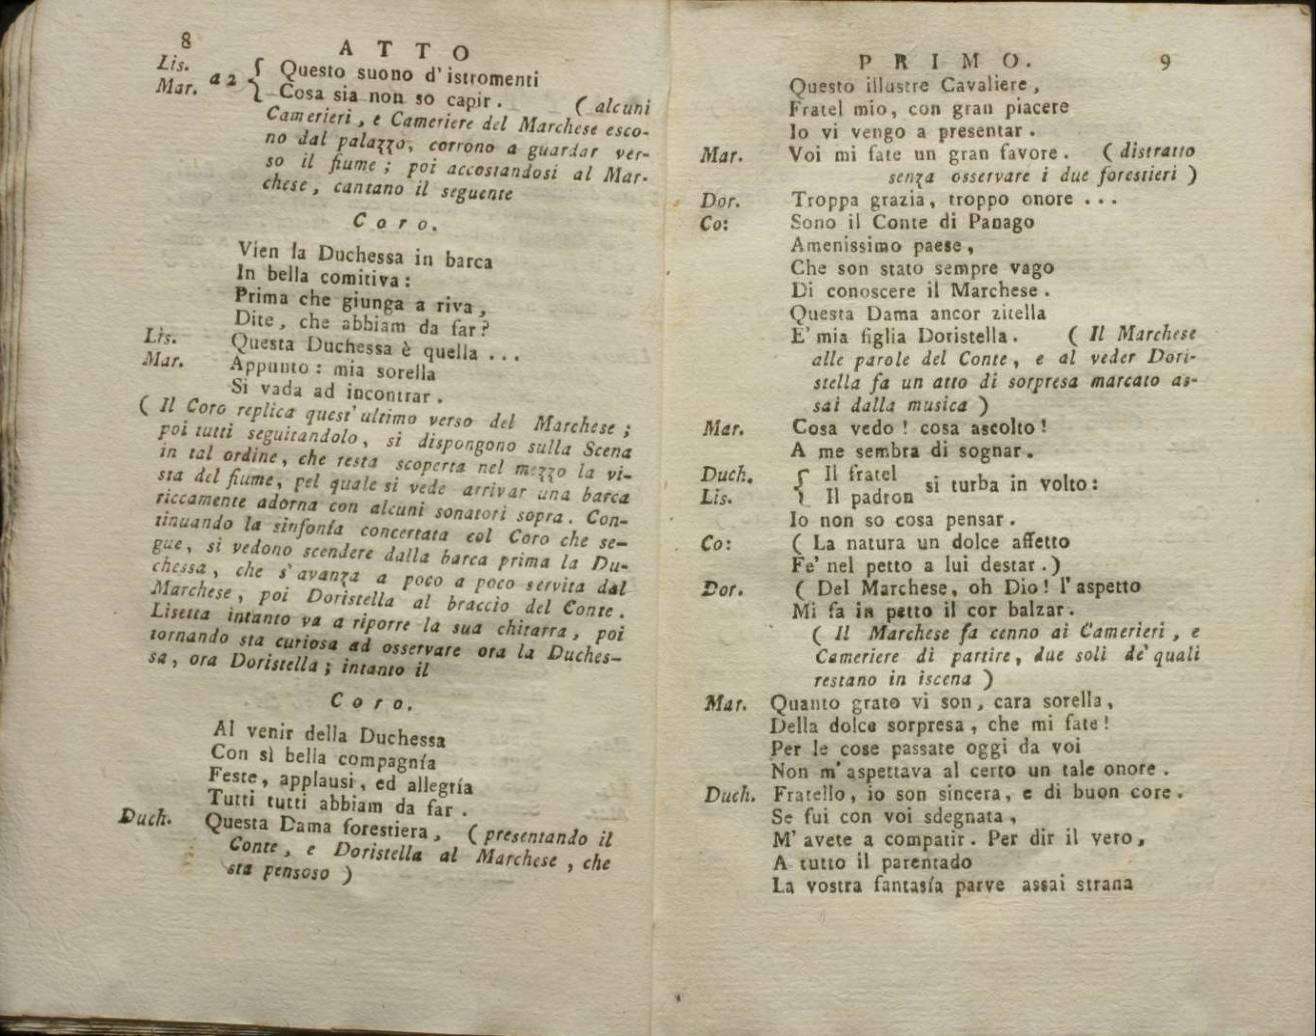 8
ATTO
Lis. Questo suono d' istromenti
Mar. a 2 Cosa sia non so capir. ( alcuni
Camerieri, e Cameriere del Marchese esco-
no dal palazzo, corrono a guardar ver-
so il fiume; poi accostandosi al Mar-
chese, cantano il seguente
Coro.
Vien la Duchessa in barca
In bella comitiva:
Prima che giunga a riva,
Dite, che abbiam da far?
Lis. Questa Duchessa è quella ...
Mar. Appunto: mia sorella
Si vada ad incontrar.
( Il Coro replica quest' ultimo verso del Marchese;
poi tutti seguitandolo, si dispongono sulla Scena
in tal ordine, che resta scoperta nel mezzo la vi-
sta del fiume, pel quale si vede arrivar una barca
riccamente adorna con alcuni sonatori sopra. Con-
tinuando la sinfonía concertata col Coro che se-
gue, si vedono scendere dalla barca prima la Du-
chessa, che s' avanza a poco a poco servita dal
Marchese, poi Doristella al braccio del Conte.
Lisetta intanto va a riporre la sua chitarra, poi
tornando sta curiosa ad osservare ora la Duches-
sa, ora Doristella; intanto il
Coro.
Al venir della Duchessa
Con sì bella compagnía
Feste, applausi, ed allegría
Tutti tutti abbiam da far.
Duch. Questa Dama forestiera, ( presentando il
Conte, e Doristella al Marchese, che
sta pensoso )
PRIMO.
9
Questo illustre Cavaliere,
Fratel mio, con gran piacere
Io vi vengo a presentar.
Mar. Voi mi fate un gran favore. ( distratto
senza osservare i due forestieri )
Dor. Troppa grazia, troppo onore ...
Co: Sono il Conte di Panago
Amenissimo paese,
Che son stato sempre vago
Di conoscere il Marchese.
Questa Dama ancor zitella
E' mia figlia Doristella. ( Il Marchese
alle parole del Conte, e al veder Dori-
stella fa un atto di sorpresa marcato as-
sai dalla musica )
Mar. Cosa vedo! cosa ascolto!
A me sembra di sognar.
Duch. Il fratel si turba in volto:
Lis. Il padron
Io non so cosa pensar.
Co: ( La natura un dolce affetto
Fe' nel petto a lui destar.)
Dor. ( Del Marchese, oh Dio! l' aspetto
Mi fa in petto il cor balzar.
( Il Marchese fa cenno ai Camerieri, e
Cameriere di partire, due soli de' quali
restano in iscena )
Mar. Quanto grato vi son, cara sorella,
Della dolce sorpresa, che mi fate!
Per le cose passate oggi da voi
Non m' aspettava al certo un tale onore.
Duch. Fratello, io son sincera, e di buon core.
Se fui con voi sdegnata,
M' avete a compatir. Per dir il vero,
A tutto il parentado
La vostra fantasía parve assai strana